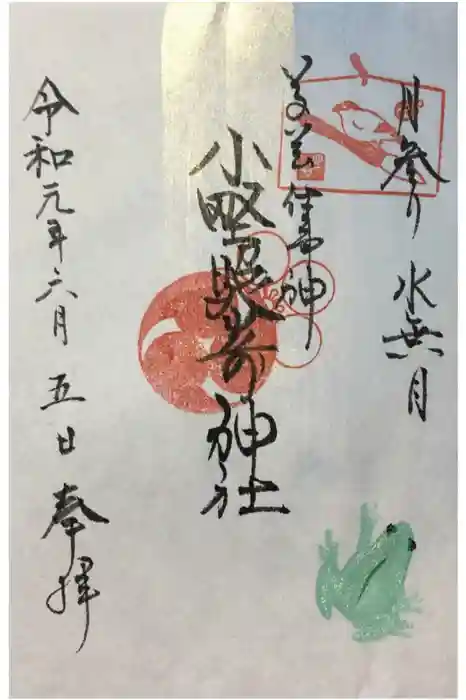 月参り 水無月
小野照崎神社
令和元年六月 五日 奉拝